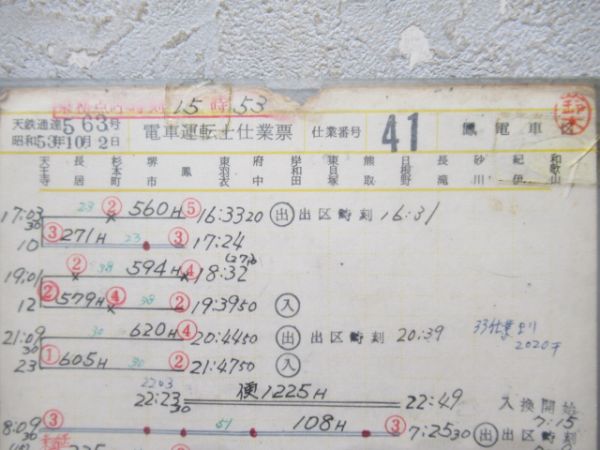 乗務点呼時刻 15時53
天鉄通達563号
昭和53年10月2日
電車運転士仕業票 仕業番号 41 鳳電車区
天王寺 長居 杉本町 堺市 鳳 東羽衣 府中 岸和田 東貝塚 熊取 日根野 長滝 砂川 紀伊 和歌山
17:03 30 23 ② 560H ⑤ 16:33 20 出 出区時刻 16:31
10 ③ 271H 23 ③ 17:24
19,01 ② 38 594H ④ 18:32
12 ② 579H ④ 38 ② 19:39 50 入
21:09 30 30 620H ④ 20:44 50 出 出区時刻 20:39
33仕業より
2020チ
23 ① 605H 30 ② 21:47 50 入
2203
22:23 30 便1225H 22:49 入換開始
7:15
8:09 30 ③ 51 108H ③ 7:25 30 出 出区時刻